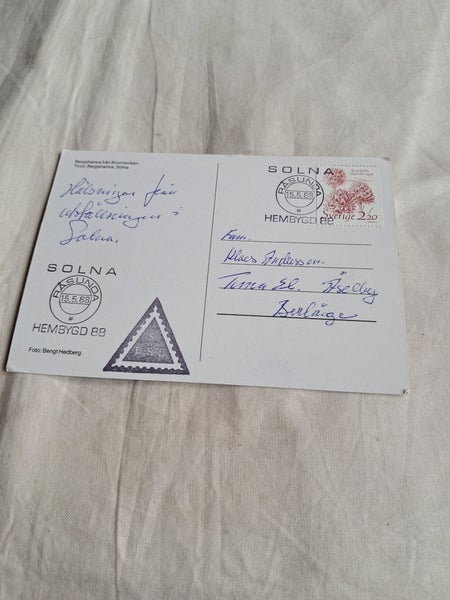 Bergshamra från Brunnsviken
Tivoli, Bergshamra, Solna
Hälsningar från
utställningen i
Solna.
SOLNA
RÅSUNDA
15.5.88
*
HEMBYGD 88
Foto: Bengt Hedberg
SOLNA
RÅSUNDA
15.5.88
HEMBYGD 88
Sverige 2.20
Fam.
Klaes Andersson
Tuna
Borlänge